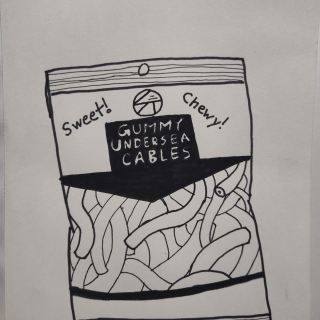 Sweet!
Chewy!
GUMMY
UNDERSEA
CABLES